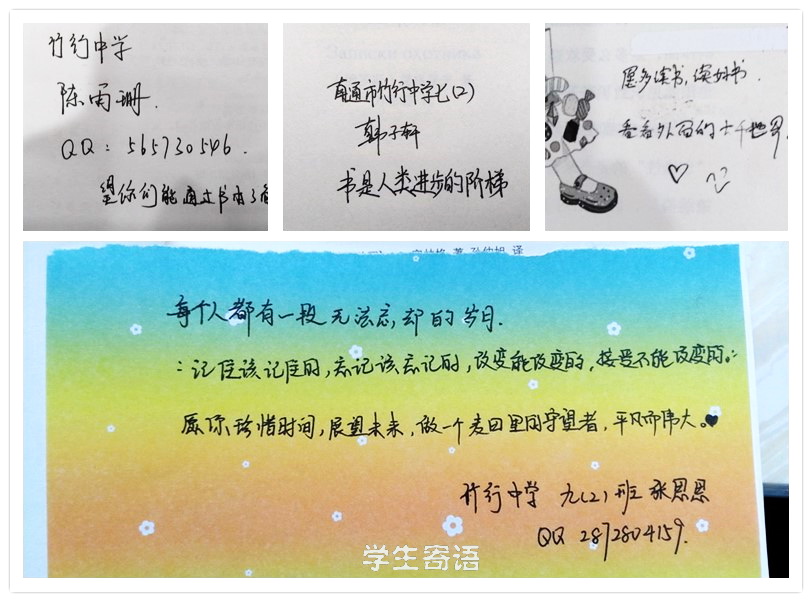 竹行中学
陈雨珊.
QQ: 565730546.
望你们能通过书本了
南通市竹行中学七(2)
韩子轩
书是人类进步的阶梯
愿多读书,读好书.
看看外面的大千世界
每个人都有一段无法忘却的岁月.
:记住该记住的,忘记该忘记的,改变能改变的,接受不能改变的。:
愿你珍惜时间,展望未来,做一个麦田里的守望者,平凡而伟大。♥
竹行中学 九(2)班 张恩恩
QQ 2872804159.
学生寄语